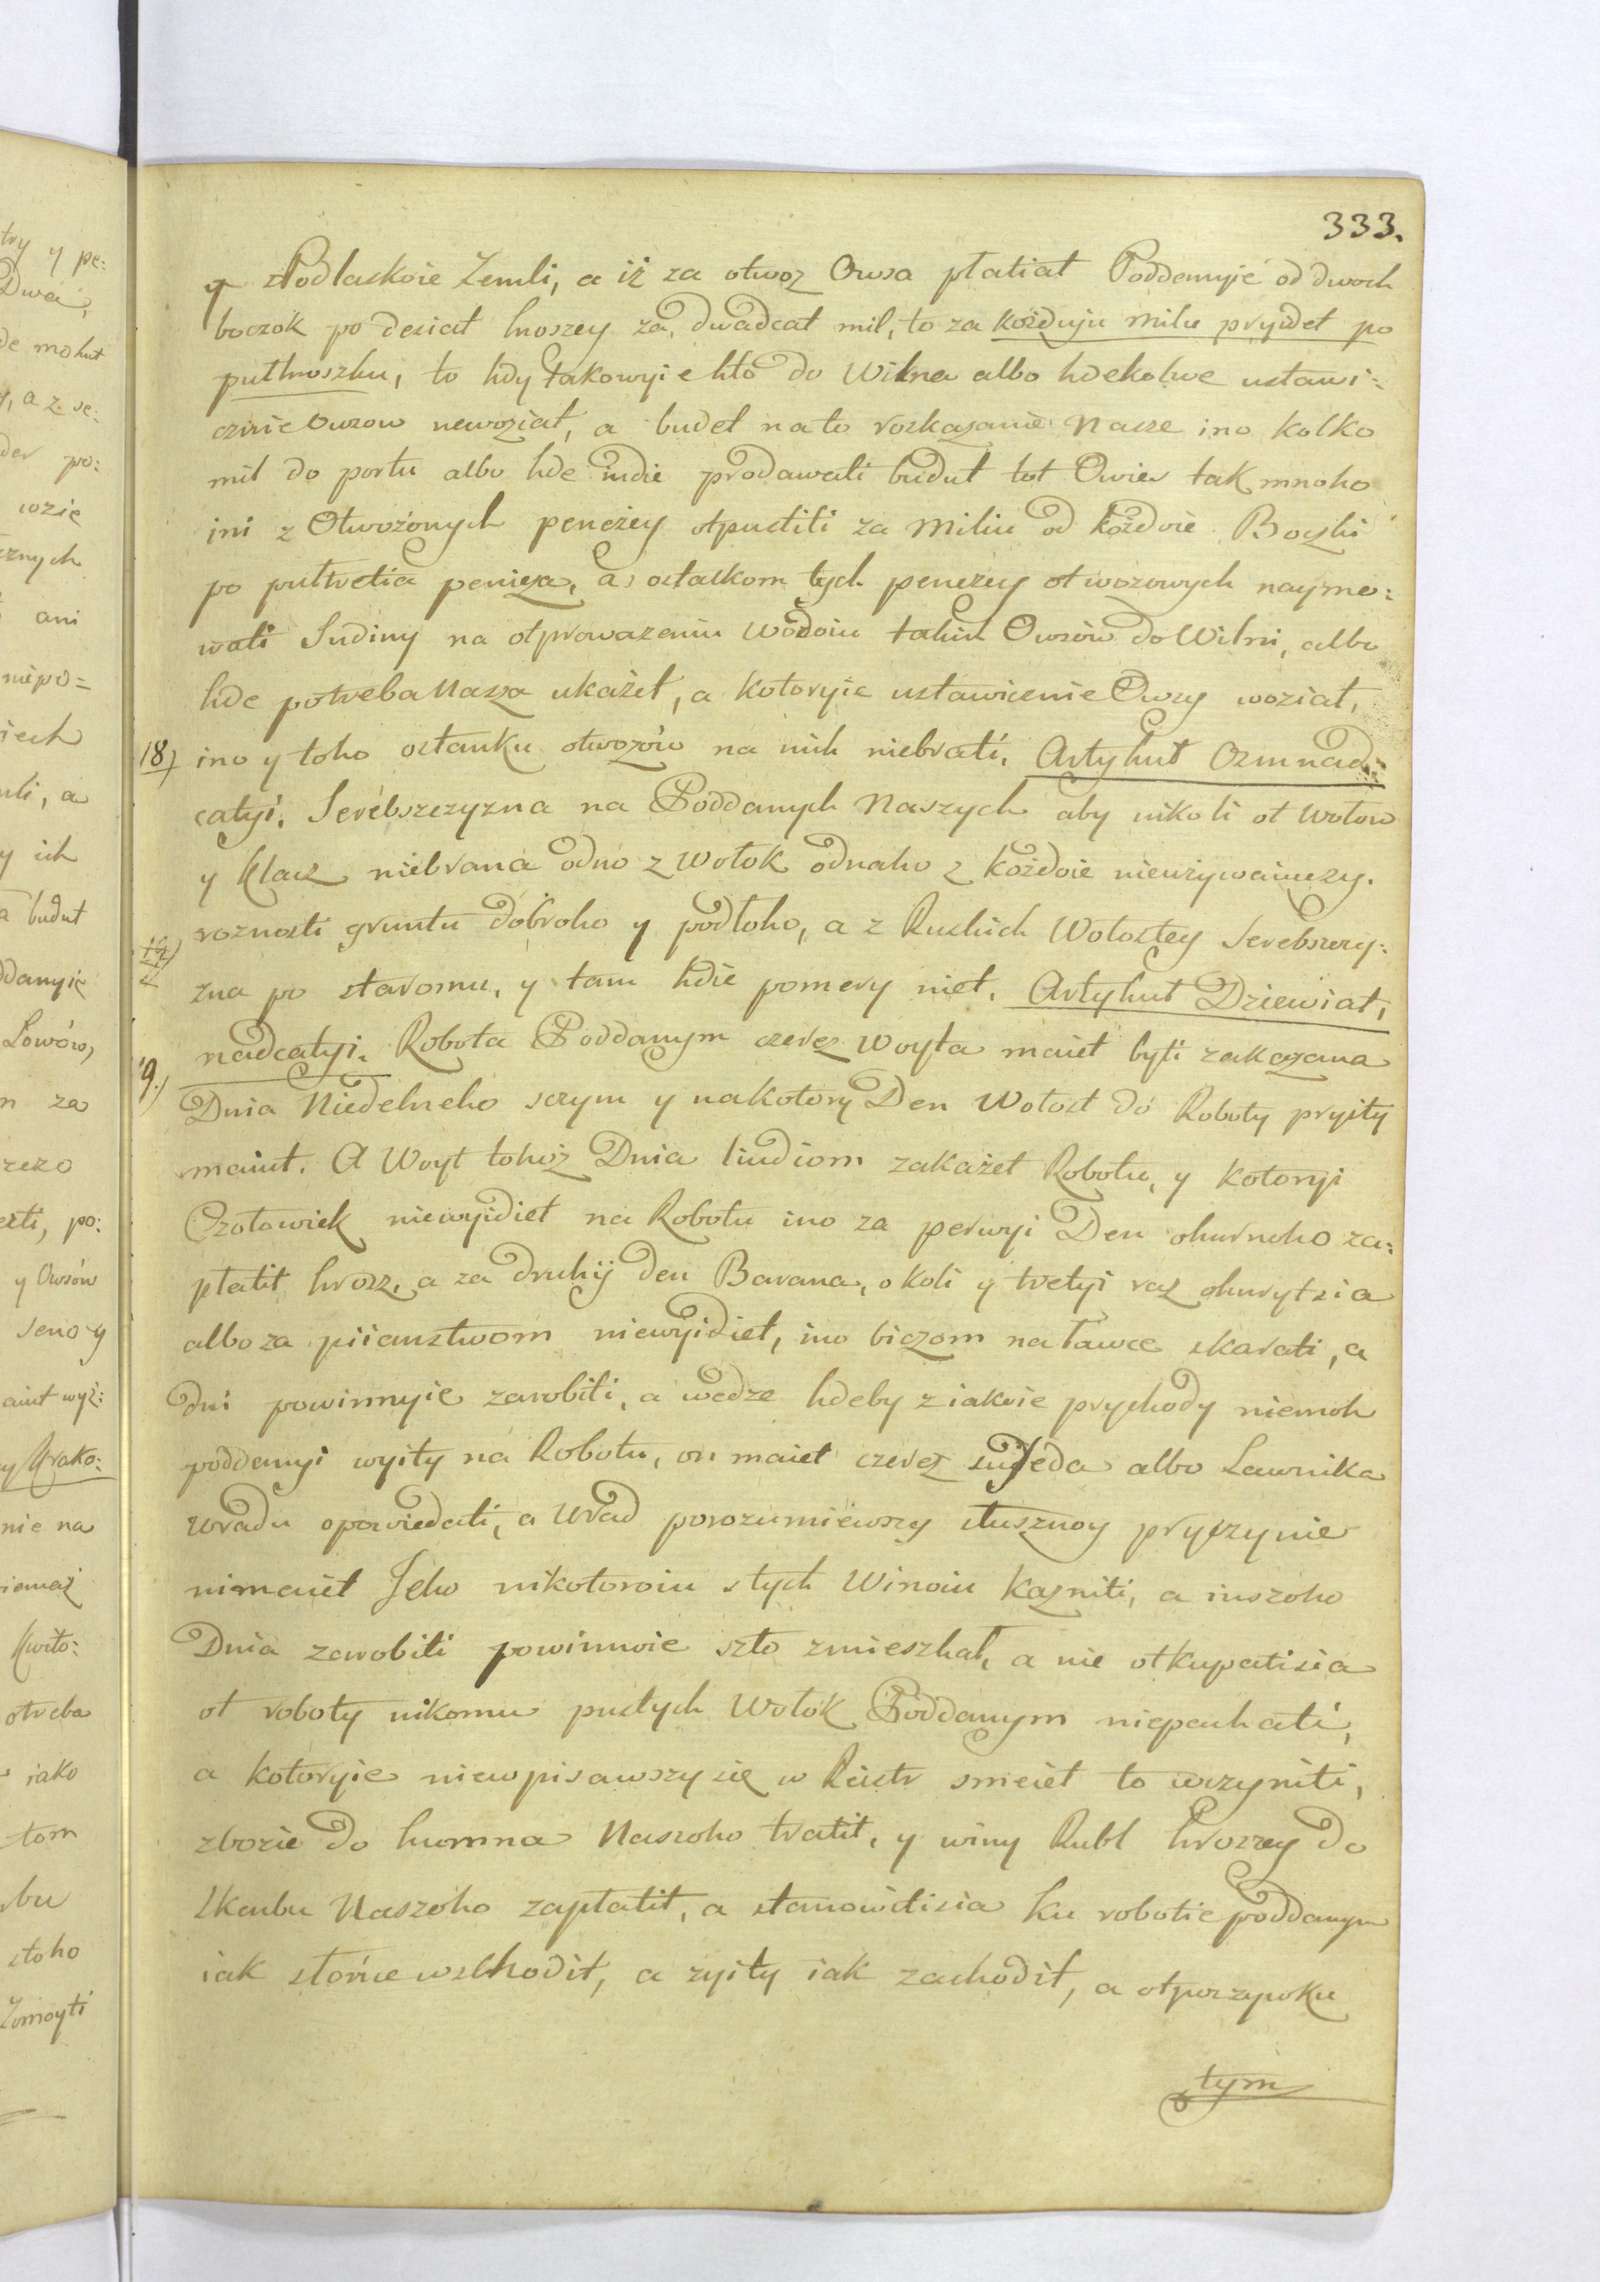 333.
y z Podlaskoie Zemli, a iż za otwoz Owsa płatiat Poddannyie od dwoch
boczok po desiat hroszey za dwadcat mil, to za kożduju milu pryidet po
puthroszku, to hdy takowyie kto do Wilna albo hdekolwe ustawi:
cznie Owsow newoziat, a budet na to roskazanie Nasze ino kolko
mil do portu albo hde indie prodawali budut tot Owies tak mnoho
jni z Otwożonych penezey otpustiti za Miliu od kożdoie Boczki
po puttretia peniza, a s ostatkom tych penezey otwozowych naymo:
wati Sudiny na otprowazeniu wodoiu takich Owsów do Wilni, albo
hde potreba Nasza ukażet, a kotoryie ustawicznie Owsy woziat,
18) ino y toho ostanku otwozów na nich niebrati. Artykuł Osmnad:
catyi. Serebszczyzna na Poddanych Naszych aby nikoli ot wołow
y Klacz niebrana odno z wołok odnaho z kożdoie nieużywaiuczy.
roznosti gruntu dobroho y podłoho, a z Ruskich Wołostey Serebszczy:
19)
zna po staromu, y tam hdie pomery niet. Artykuł Dziewiat,
19.) nadcatyi. Robota Poddanym czerez woyta maiet byti zakazana
Dnia Niedelneho sczym y nakotory Den Wołost do Roboty pryity
maiut. A Woyt tohoż Dnia liudiom zakażet Robotu, y kotoryi
Czołowiek niewyidiet na Robotu ino za perwyi Den ohurneho za:
płatit hrosz, a za druhij den Barana, o koli y tretyi raz ohurytsia
albo za piianstwom niewyidiet, ino biczom na ławce skarati, a
dni powinnyie zarobiti, a wedze hdeby z iakoie prychody niemoh
poddanyi wyity na Robotu, on maiet czerez susieda albo Ławnika
wradu opowiedati, a Wrad porozumiewszy słusznoy pryczynie
nimaiet Jeho nikotoroiu s tych Winoiu kazniti, a inszoho
Dnia zarobiti powinnoie szto zmieszkał, a nie otkupatisia
ot roboty nikomu pustych Wołok Poddanym niepachati,
a kotoryie niewpisawszysię w Reistr smeiet to uczyniti,
zbozie do humna Naszoho tratit, y winy Rubl hroszey do
Skarbu Naszoho zapłatit, a stanowitisia ku robotie poddanym
iak słońce wschodit, a zyity iak zachodit, a otpoczynku
tym